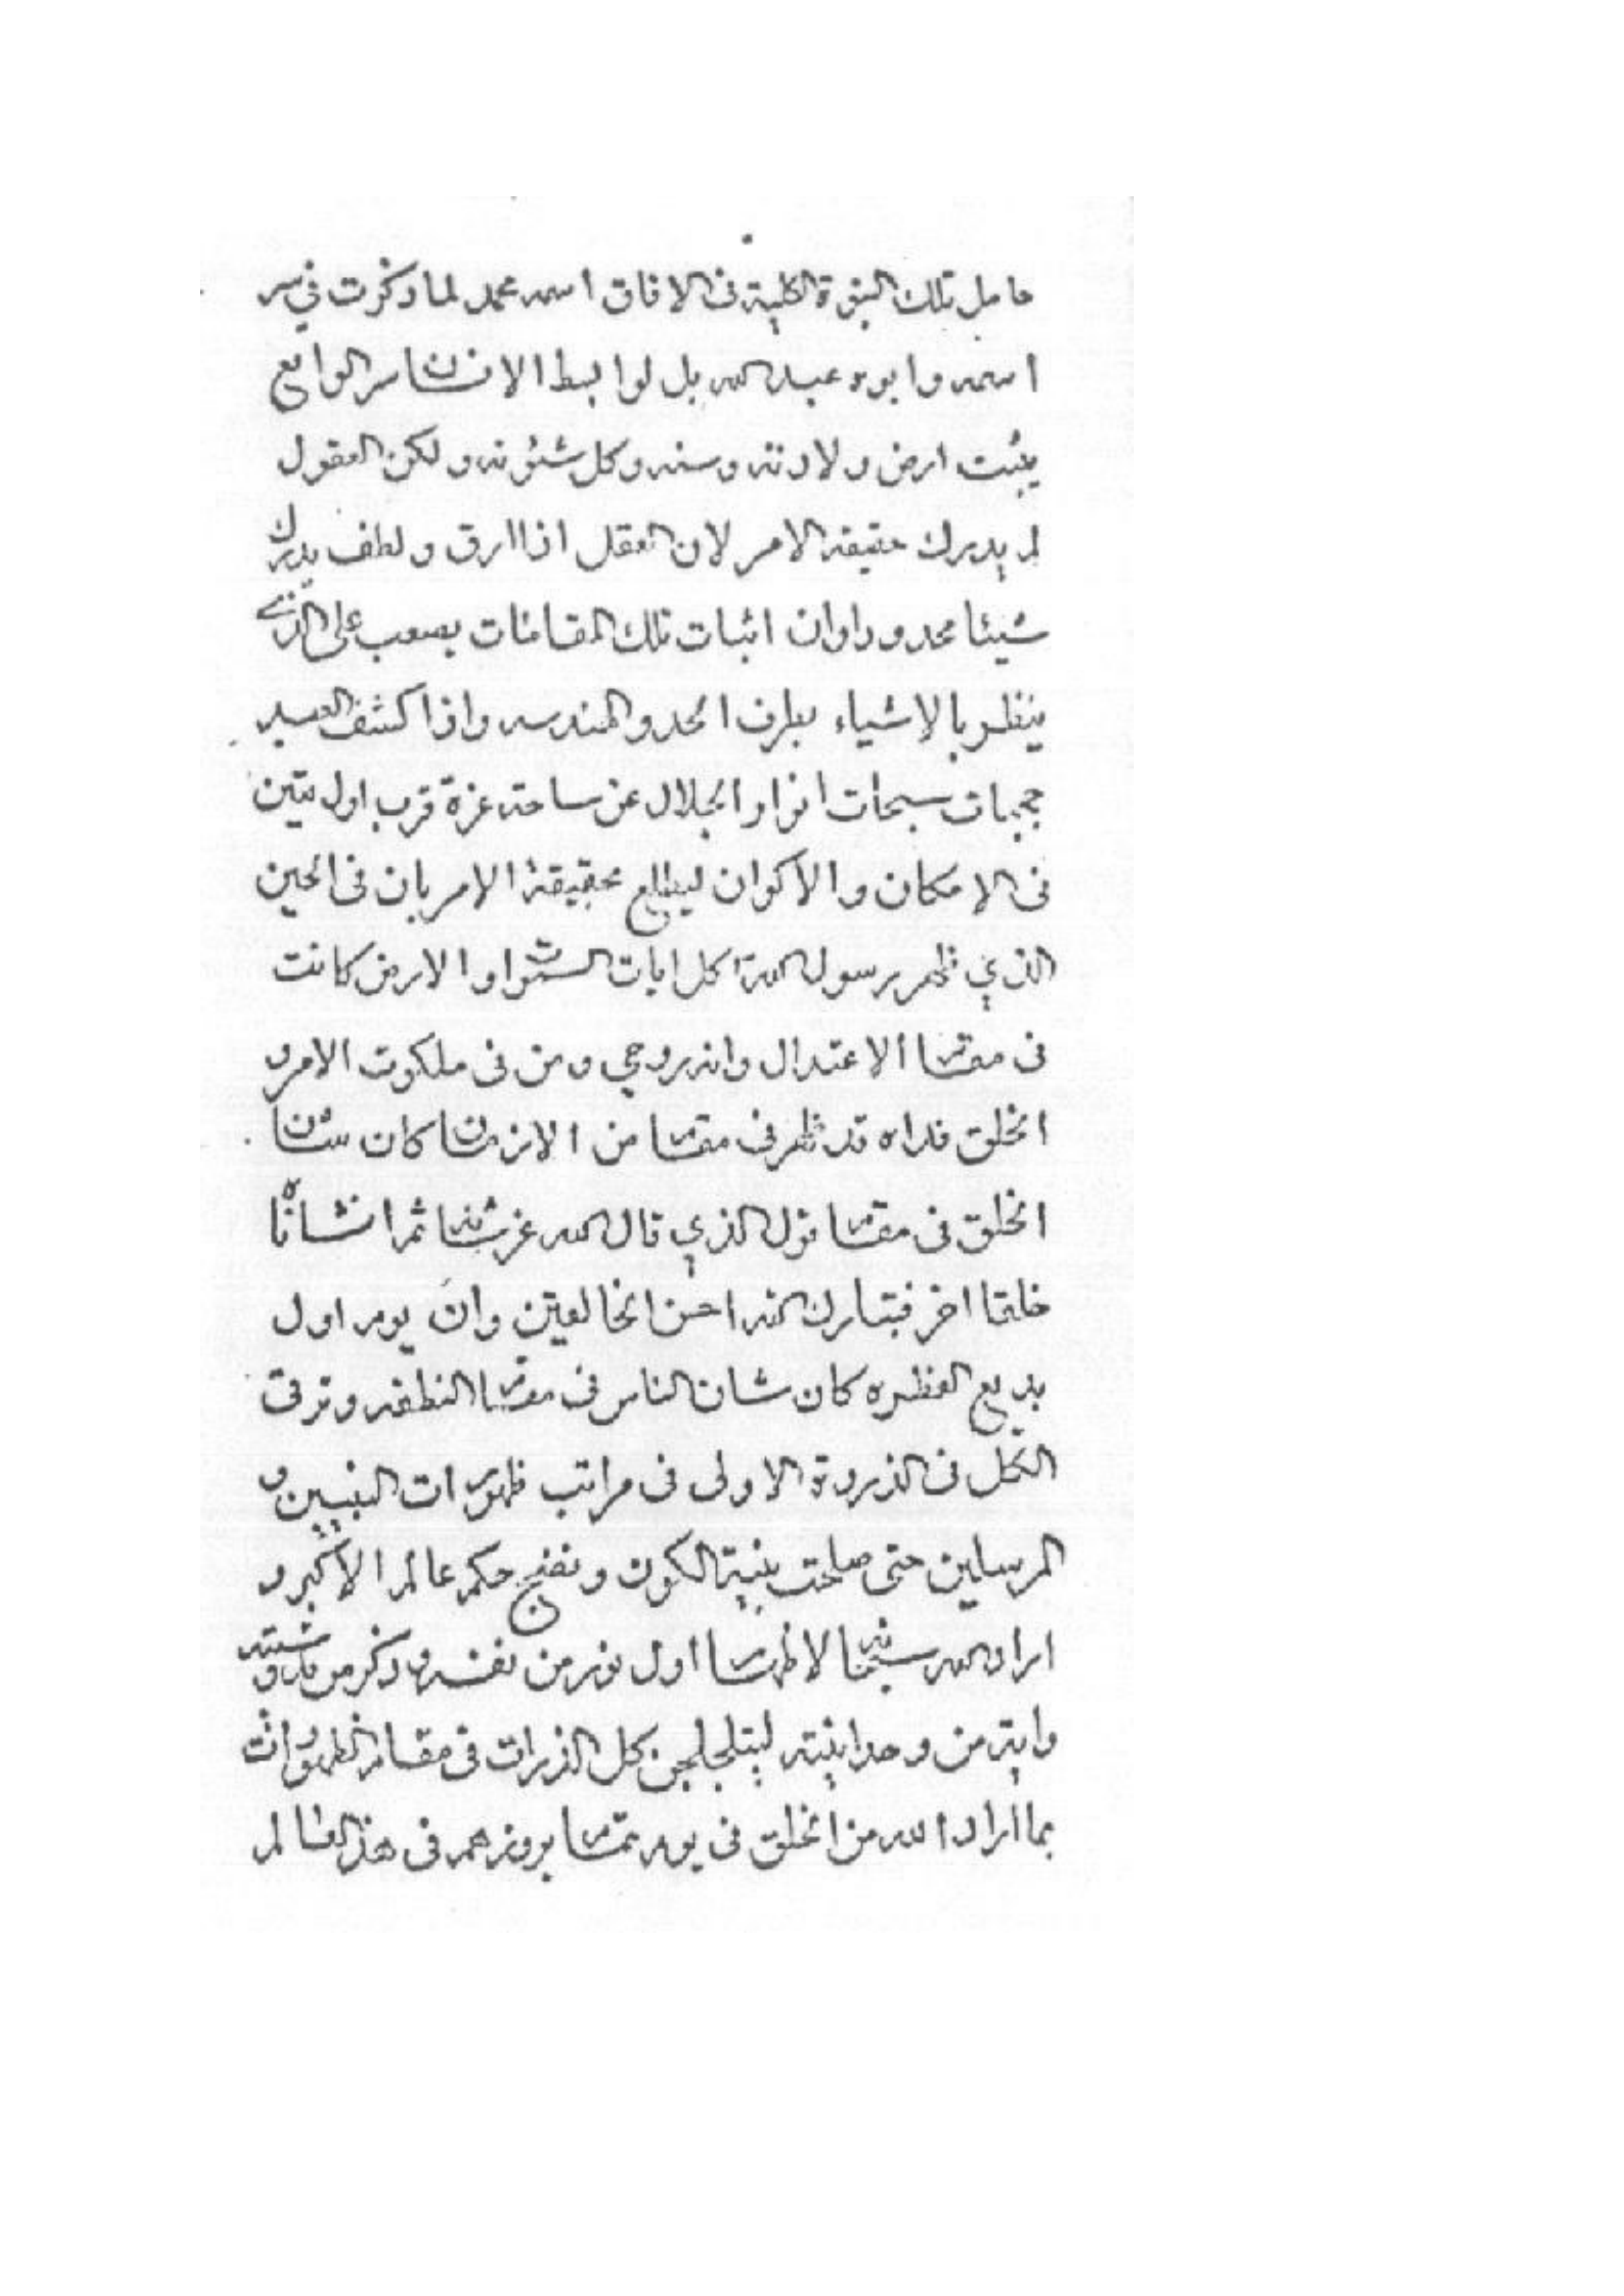 حامل تلك النبوة الكلية فى الافاق اسمه محمد لما ذكرت في سر
اسمه وابوه عبد الله بل لو ابسط الانسان سر الواقع
يثبت ارض ولادته وسنه وكل شئونه ولكن العقول
لم يدرك حقيقة الامر لان العقل اذا ارق ولطف يدرك
شيئا محدودا وان اثبات تلك المقامات يصعب على الذي
ينظر بالاشياء بطرف الحد والهندسه واذا كشف العبد
حجبات سبحات انوار الجلال عن ساحة عزة قرب اول تعين
فى الامكان والاكوان ليطلع بحقيقة الامر بان فى الحين
الذي ظهر رسول الله كل ايات السموات والارض كانت
فى مقام الاعتدال وانه روحي ومن فى ملكوت الامر و
الخلق فداه قد ظهر فى مقام من الازمان كان شان
الخلق فى مقام قول الذي قال الله عز شانه ثم انشاناه
خلقا اخر فتبارك الله احسن الخالقين وان يوم اول
بديع الفطره كان شان الناس فى مقام النطفه وترقى
الكل فى الذروة الاولى فى مراتب ظهورات النبيين و
المرسلين حتى صلحت بنية الكون ونضج حكم عالم الاكبر و
اراد الله سبحانه لاظهار اول نور من نفسه وذكر من
واية من وحدانيته ليتلجلجن كل الذرات فى مقام الظهورات
بما اراد الله من الخلق فى يوم تمام بروزهم فى هذا العالم